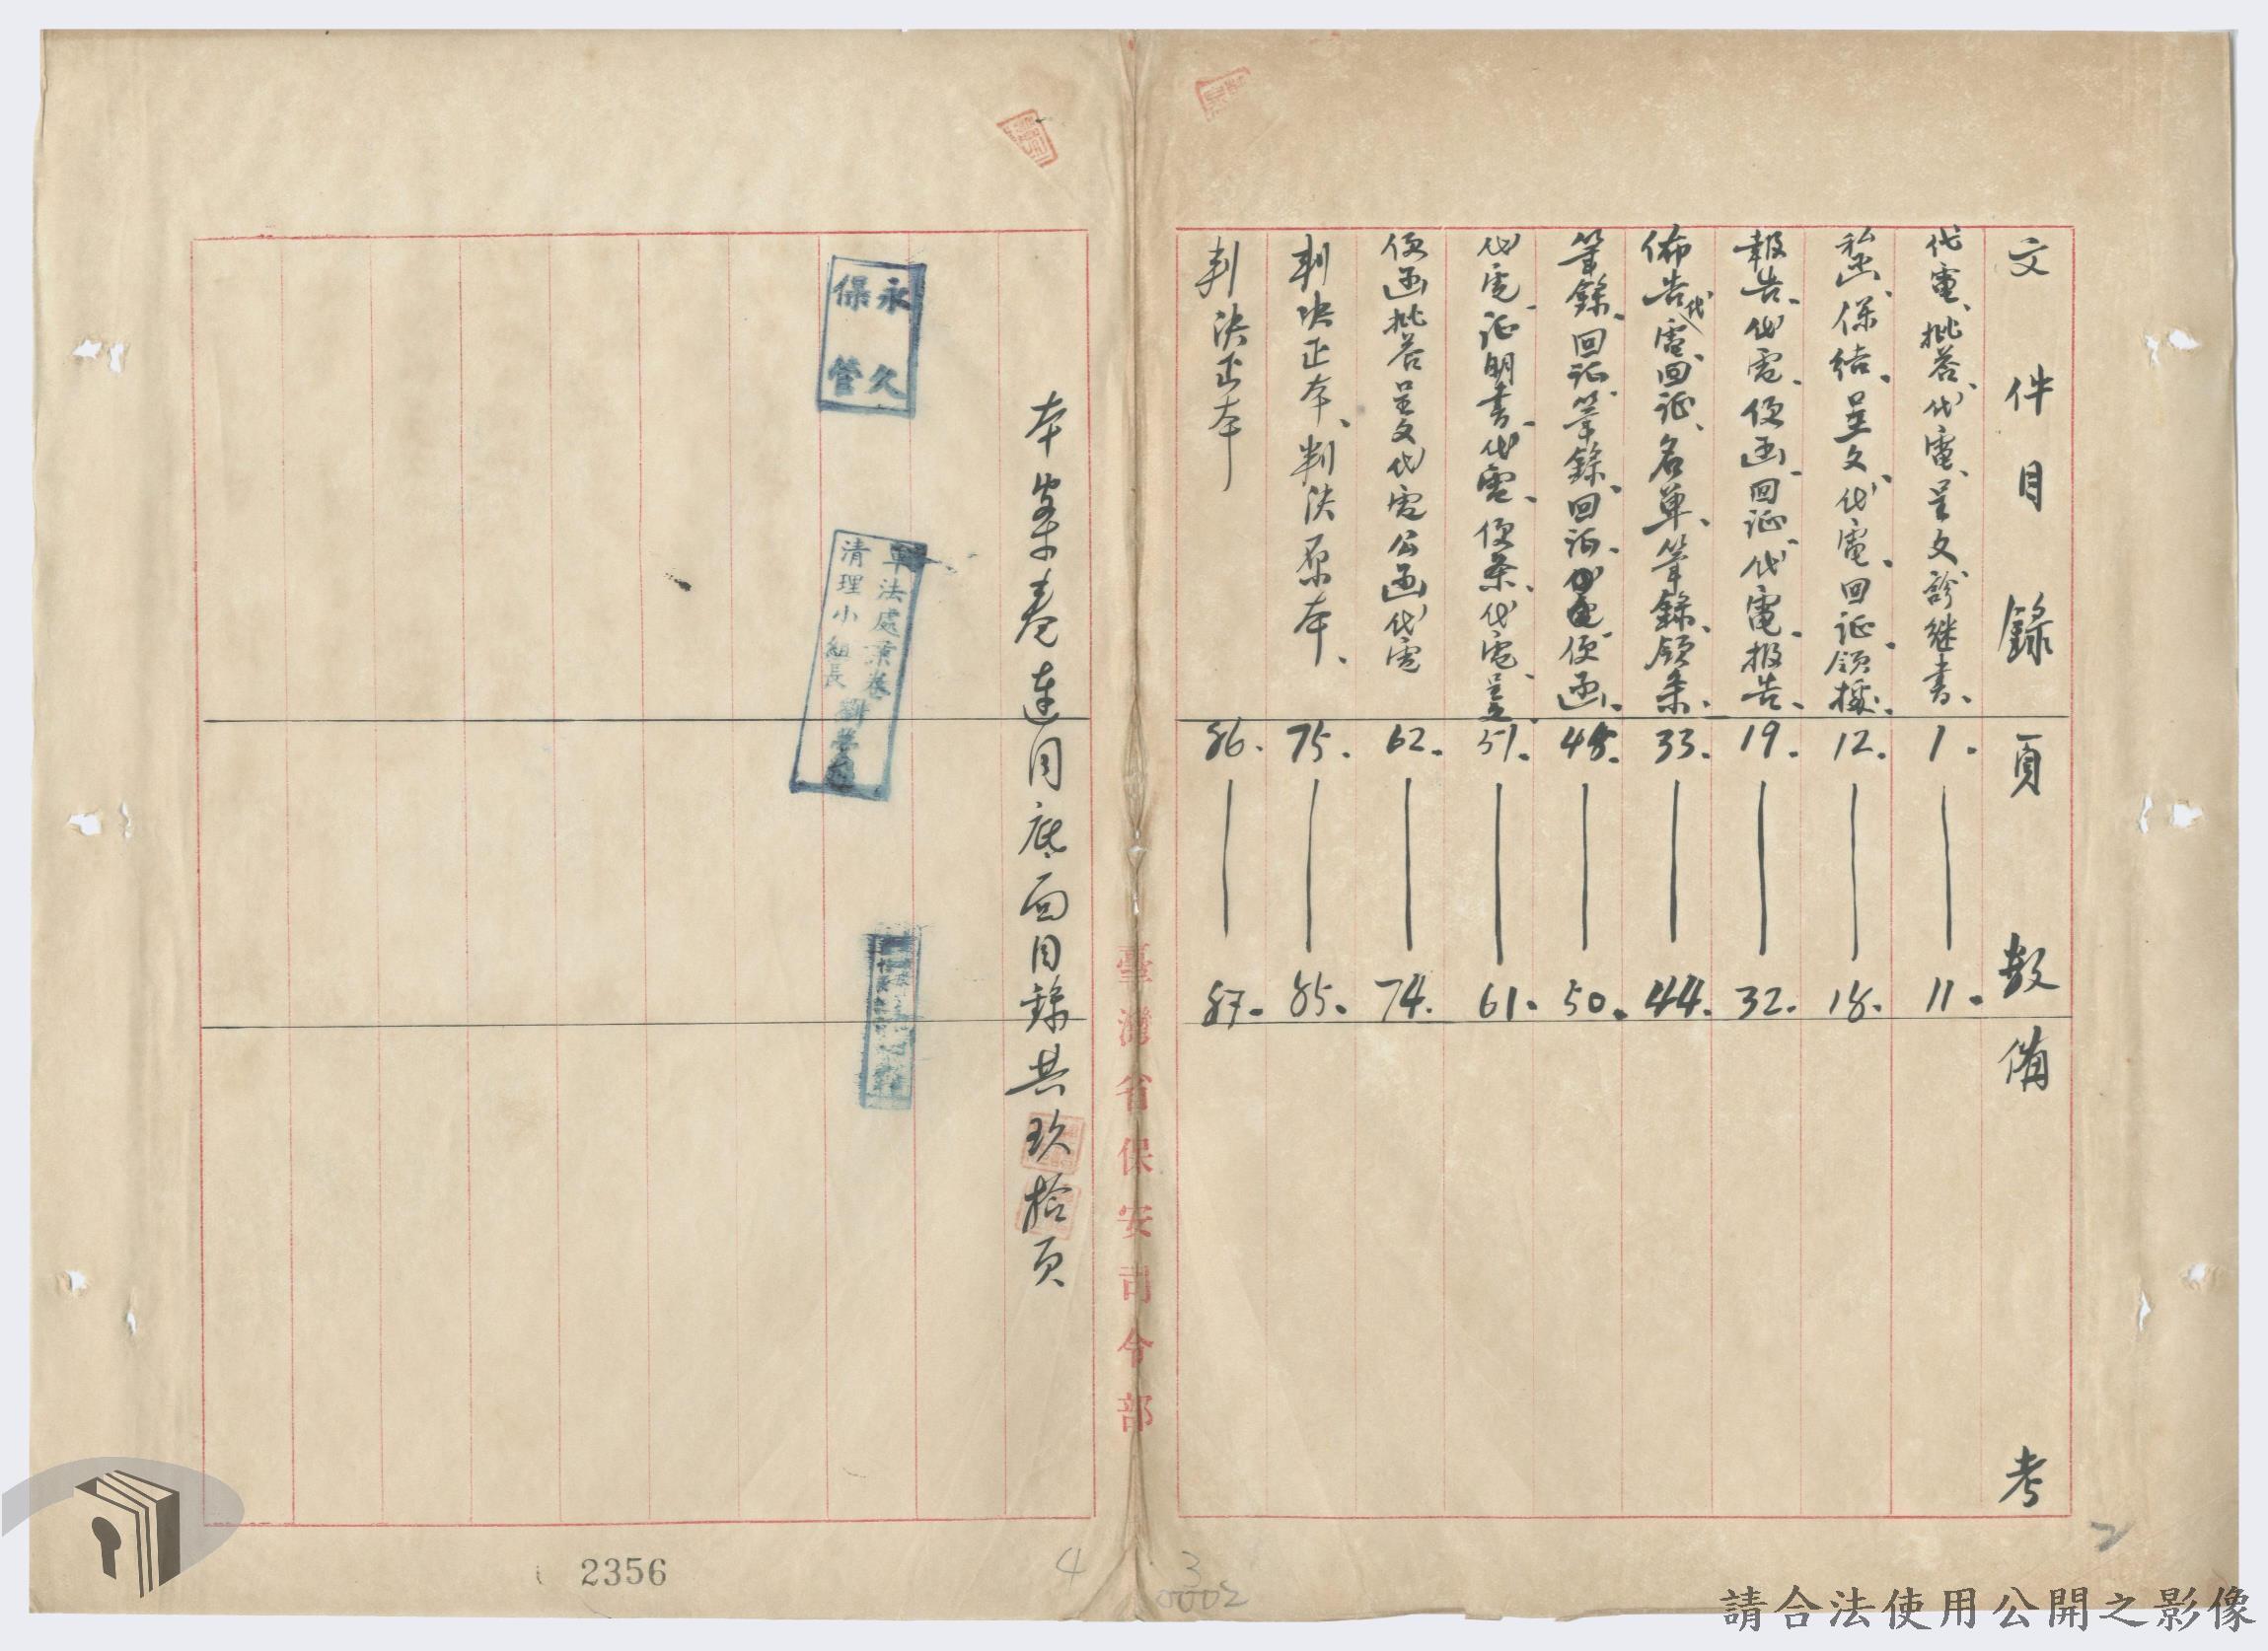 文件目錄 頁數 備考
代電、批答、代電、呈文、診继書、 1. — 11.
私函、保结、呈文、代電、回证、領据、 12. — 18.
報告、代電、便函、回证、代電、报告、 19. — 32.
佈告、代電、回证、名单、筆錄、領条、 33. — 44.
筆錄、回证、筆錄、回证、代电、便函、 45. — 50.
代電、证明書、代電、便条、代電、呈文、 51. — 61.
便函批答呈文代電公函代電 62. — 74.
判决正本、判决原本、 75. — 85.
判决正本 86. — 87.
臺灣省保安司令部
本案卷連同底面目錄共玖拾页
永久
保管
軍法處案卷
清理小組長
2356
4
3
0002
2
請合法使用公開之影像